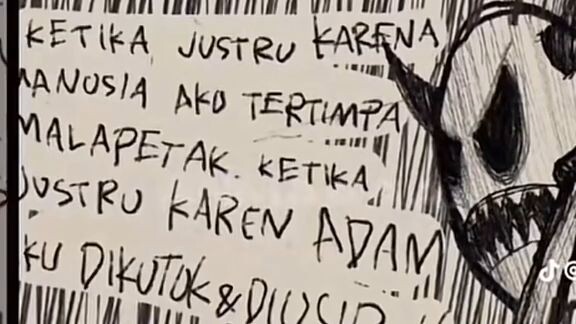 KETIKA JUSTRU KARENA
MANUSIA AKU TERTIMPA
MALAPETAK. KETIKA
JUSTRU KAREN ADAM
KU DIKUTUK &